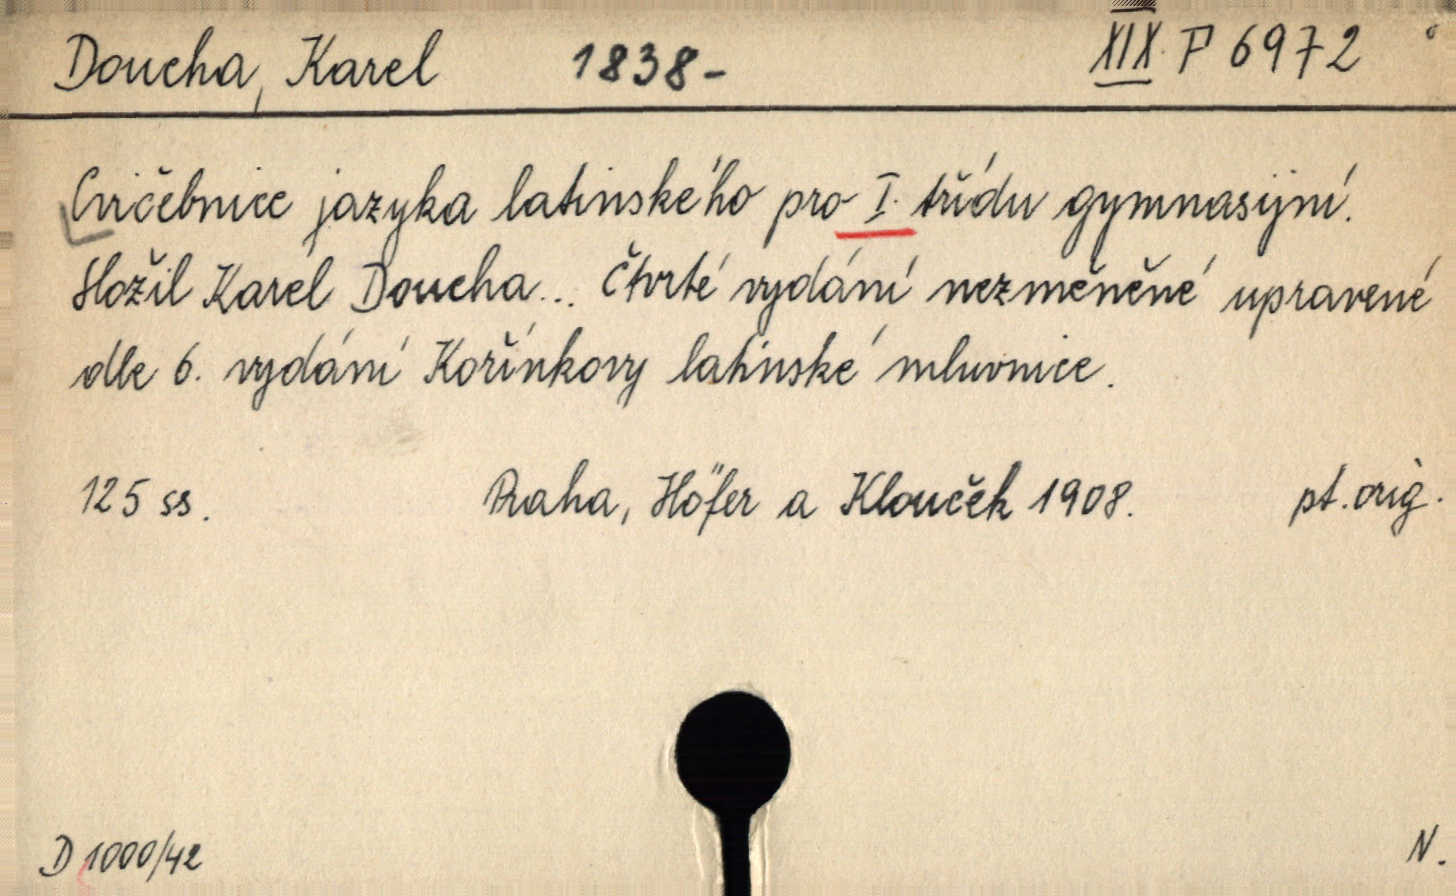 Doucha, Karel 1838- XIX. P 6972
Cvičebnice jazyka latinského pro I. třídu gymnasijní.
Složil Karel Doucha... Čtvrté vydání nezměněné upravené
dle 6. vydání Kořínkovy latinské mluvnice.
125 ss. Praha, Höfer a Klouček 1908. pt. orig.
D 1000/42 N.